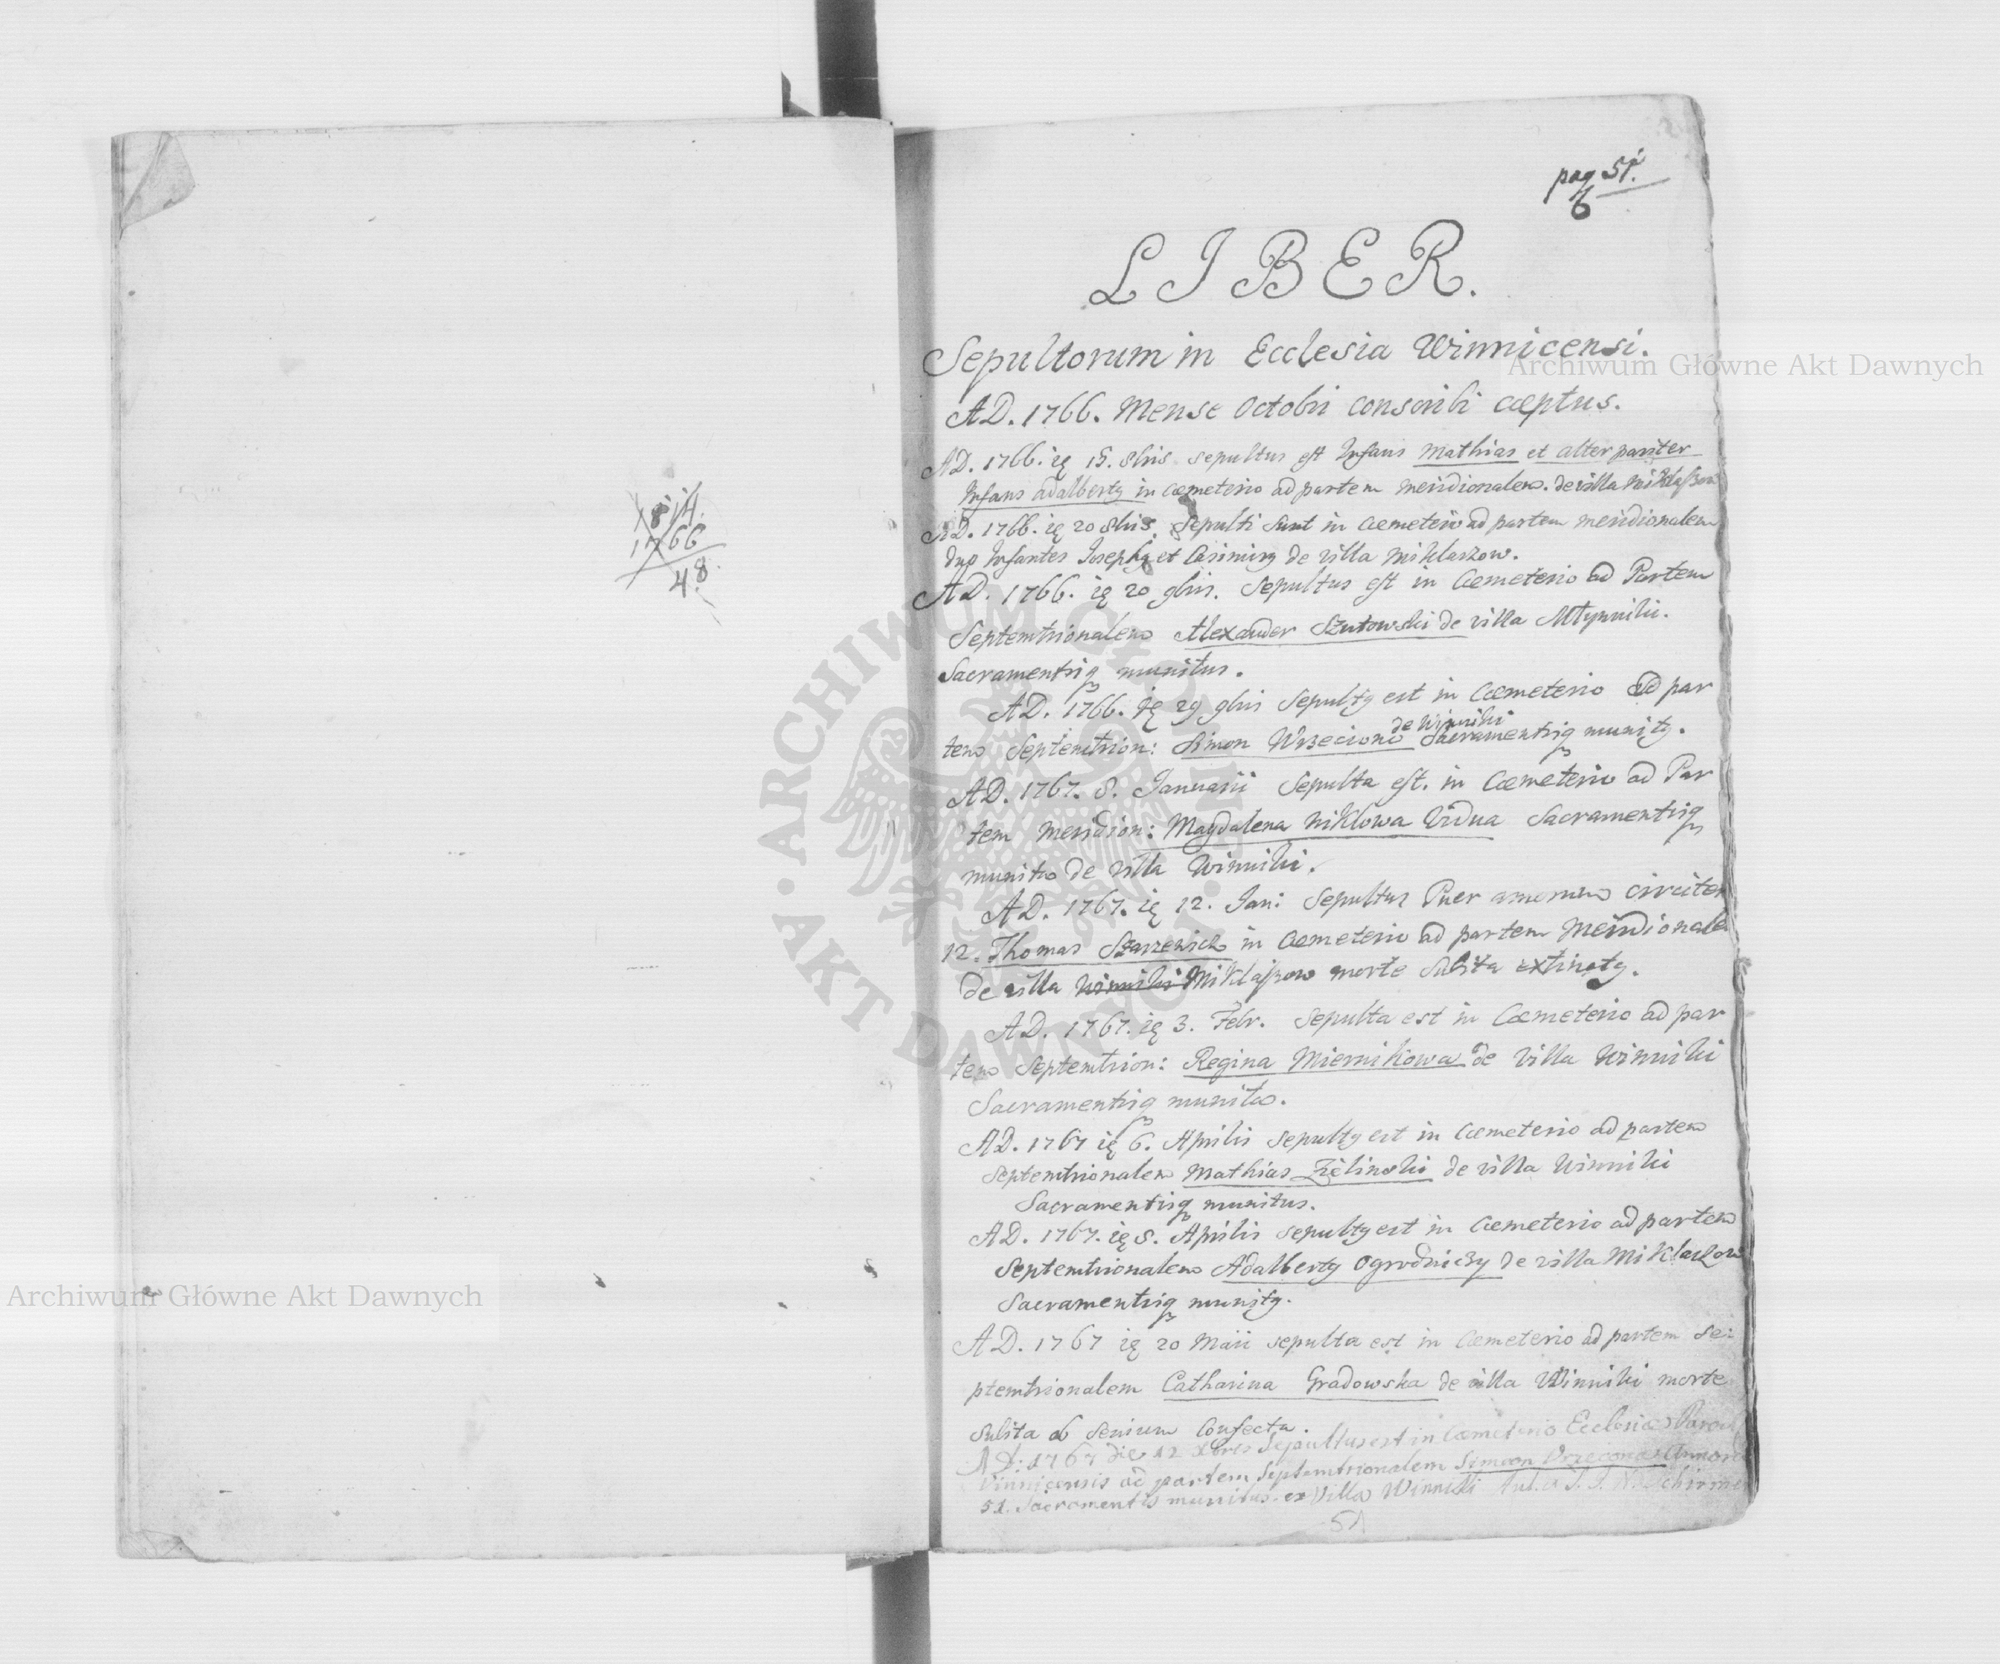 1814.
1766
48.
pag 51.
6
LIBER.
Sepultorum in Ecclesia Winnicensi.
AD. 1766. Mense Octobri conscribi cæptus.
AD. 1766. ię 15. 8bris sepultus est Infans Mathias et alter pariter
Infans adalberty in cæmeterio ad partem meridionalem. de villa Miklaszow
AD. 1766. ię 20 8bris. Sepulti sunt in cæmeterio ad partem meridionalem
duo Infantes Josephy et Casimiry de villa Miklaszow.
AD. 1766. ię 20 9bris. Sepultus est in Cæmeterio ad Partem
Septemtrionalem Alexander Szutowski de villa Młynniki.
Sacramentisq munitus.
AD. 1766. ię 29 9bris Sepulty est in Cæmeterio ad par
tem Septemtrion: Simon Wrzeciono de Winniki Sacramentisq munity.
AD. 1767. 8. Januarii Sepulta est. in Cæmeterio ad Par
tem meridion: Magdalena Niklowa Vidua Sacramentisq
munita de villa Winniki.
AD. 1767. ię 12. Jan: Sepultus Puer annorum circiter
12. Thomas in Cæmeterio ad partem Meridionale
de villa Winniki Miklaszow morte Subita extincty.
AD. 1767. ię 3. Febr. Sepulta est in Cæmeterio ad par
tem Septemtrion: Regina Miernikowa de Villa Winniki
Sacramentisq munita.
AD. 1767 ię 6. Aprilis sepulty est in Cæmeterio ad partem
Septemtrionalem Mathias Zielinski de villa Winniki
Sacramentisq munitus.
AD. 1767. ię 8. Aprilis sepulty est in Cæmeterio ad partem
Septemtrionalem Adalberty Ogrodniczy de villa Miklaszow
Sacramentisq munity.
AD. 1767 ię 20 Maii sepulta est in Cæmeterio ad partem Se:
ptemtrionalem Catharina Gradowska de villa Winniki morte
subita ob senium confecta.
AD: 1767 die 12 Xbris Sepultus est in Cæmeterio Ecclesiæ Paroch
Vinnicensis ad partem Septemtrionalem Simeon Vrzeciona Annor
51. Sacramentis munitus. ex Villa Winniki
51
Archiwum Główne Akt Dawnych
Archiwum Główne Akt Dawnych
ARCHIWUM GŁÓWNE
AKT DAWNYCH